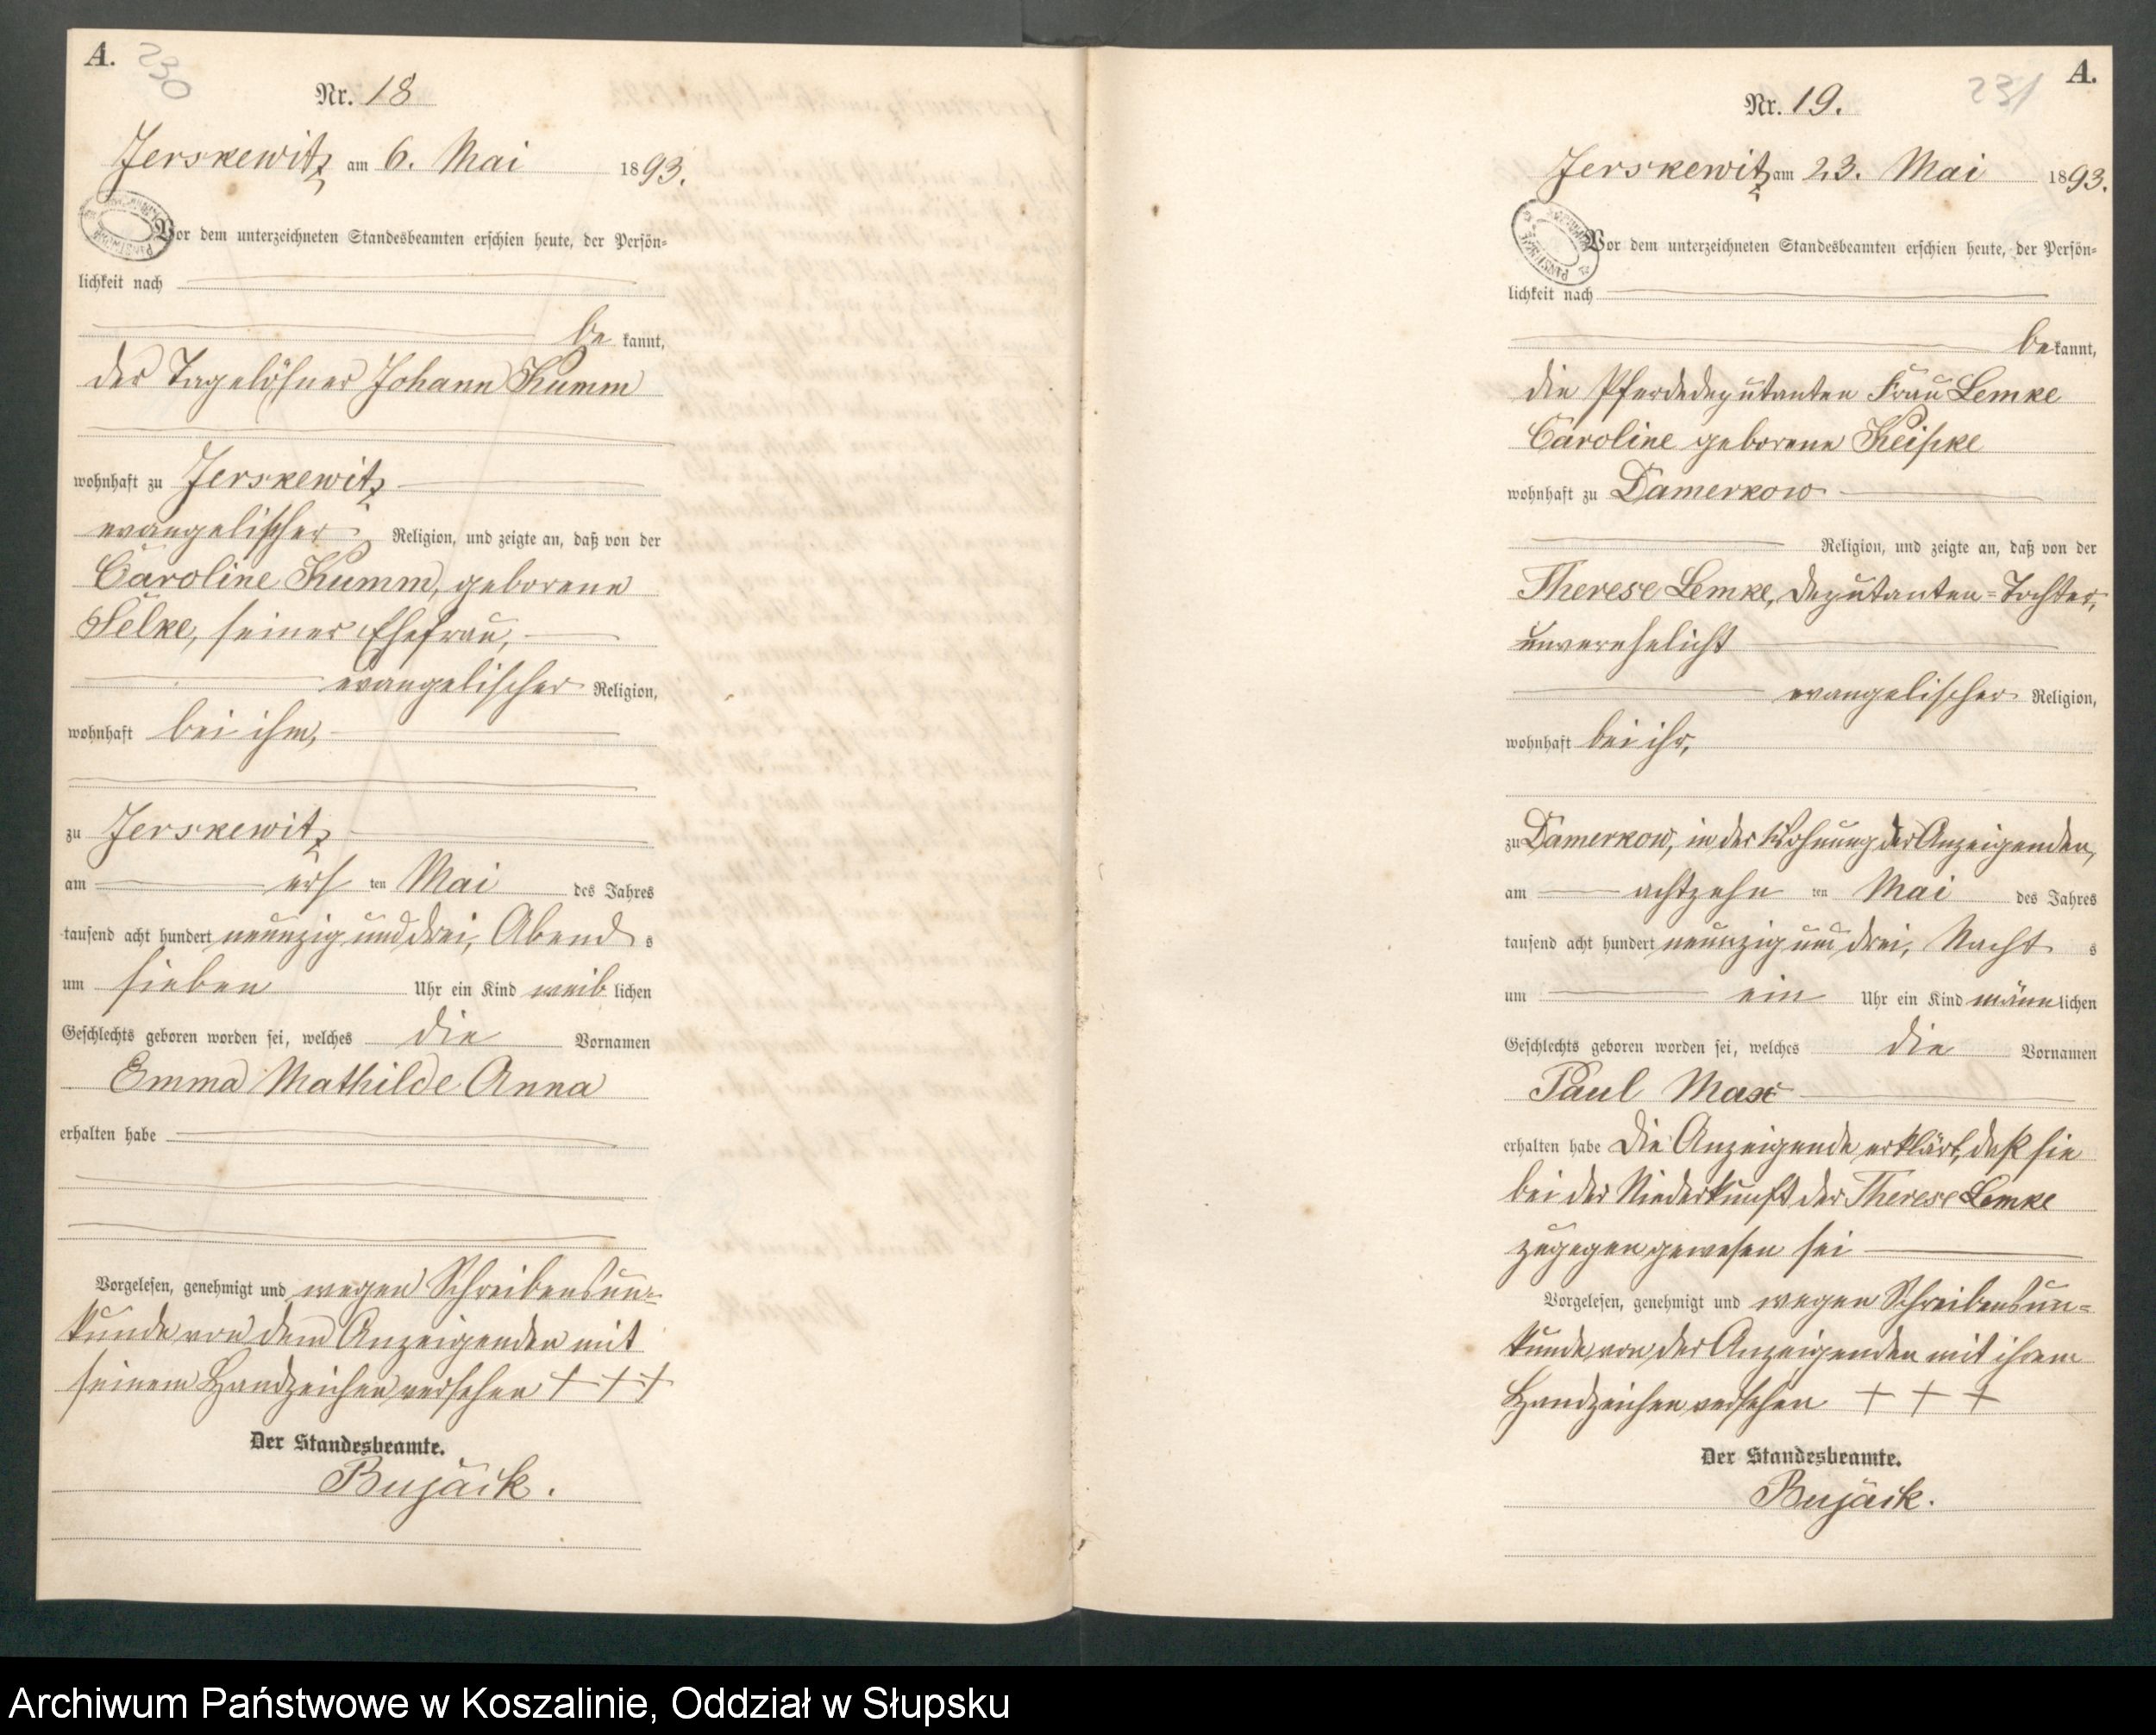 A.
230
Nr. 18
Jerskewitz am 6. Mai 1893.
Vor dem unterzeichneten Standesbeamten erschien heute, der Persön-
lichkeit nach
be kannt,
der Tagelöhner Johann Kumm
wohnhaft zu Jerskewitz
evangelischer Religion, und zeigte an, daß von der
Caroline Kumm, geborene
Selke, seiner Ehefrau,
evangelischer Religion,
wohnhaft bei ihm,
zu Jerskewitz
am ers ten Mai des Jahres
tausend acht hundert neunzig und drei, Abend s
um sieben Uhr ein Kind weib lichen
Geschlechts geboren worden sei, welches die Vornamen
Emma Mathilde Anna
erhalten habe
Vorgelesen, genehmigt und wegen Schreibensun-
kunde von dem Anzeigenden mit
seinem Handzeichen versehen + + +
Der Standesbeamte.
Bujack.
A.
231
Nr. 19.
Jerskewitz am 23. Mai 1893.
Vor dem unterzeichneten Standesbeamten erschien heute, der Persön-
lichkeit nach
be kannt,
die Pferdedeputanten Frau Lemke
Caroline geborene
wohnhaft zu Damerkow
Religion, und zeigte an, daß von der
Therese Lemke, Deputanten-Tochter,
unverehelicht
evangelischer Religion,
wohnhaft bei ihr,
zu Damerkow, in der Wohnung der Anzeigenden,
am achtzehn ten Mai des Jahres
tausend acht hundert neunzig und drei, Nacht s
um ein Uhr ein Kind männ lichen
Geschlechts geboren worden sei, welches die Vornamen
Paul Max
erhalten habe Die Anzeigende erklärt, daß sie
bei der Niederkunft der Therese Lemke
zugegen gewesen sei
Vorgelesen, genehmigt und wegen Schreibensun-
kunde von der Anzeigenden mit ihrem
Handzeichen versehen + + +
Der Standesbeamte.
Bujack.
Archiwum Państwowe w Koszalinie, Oddział w Słupsku